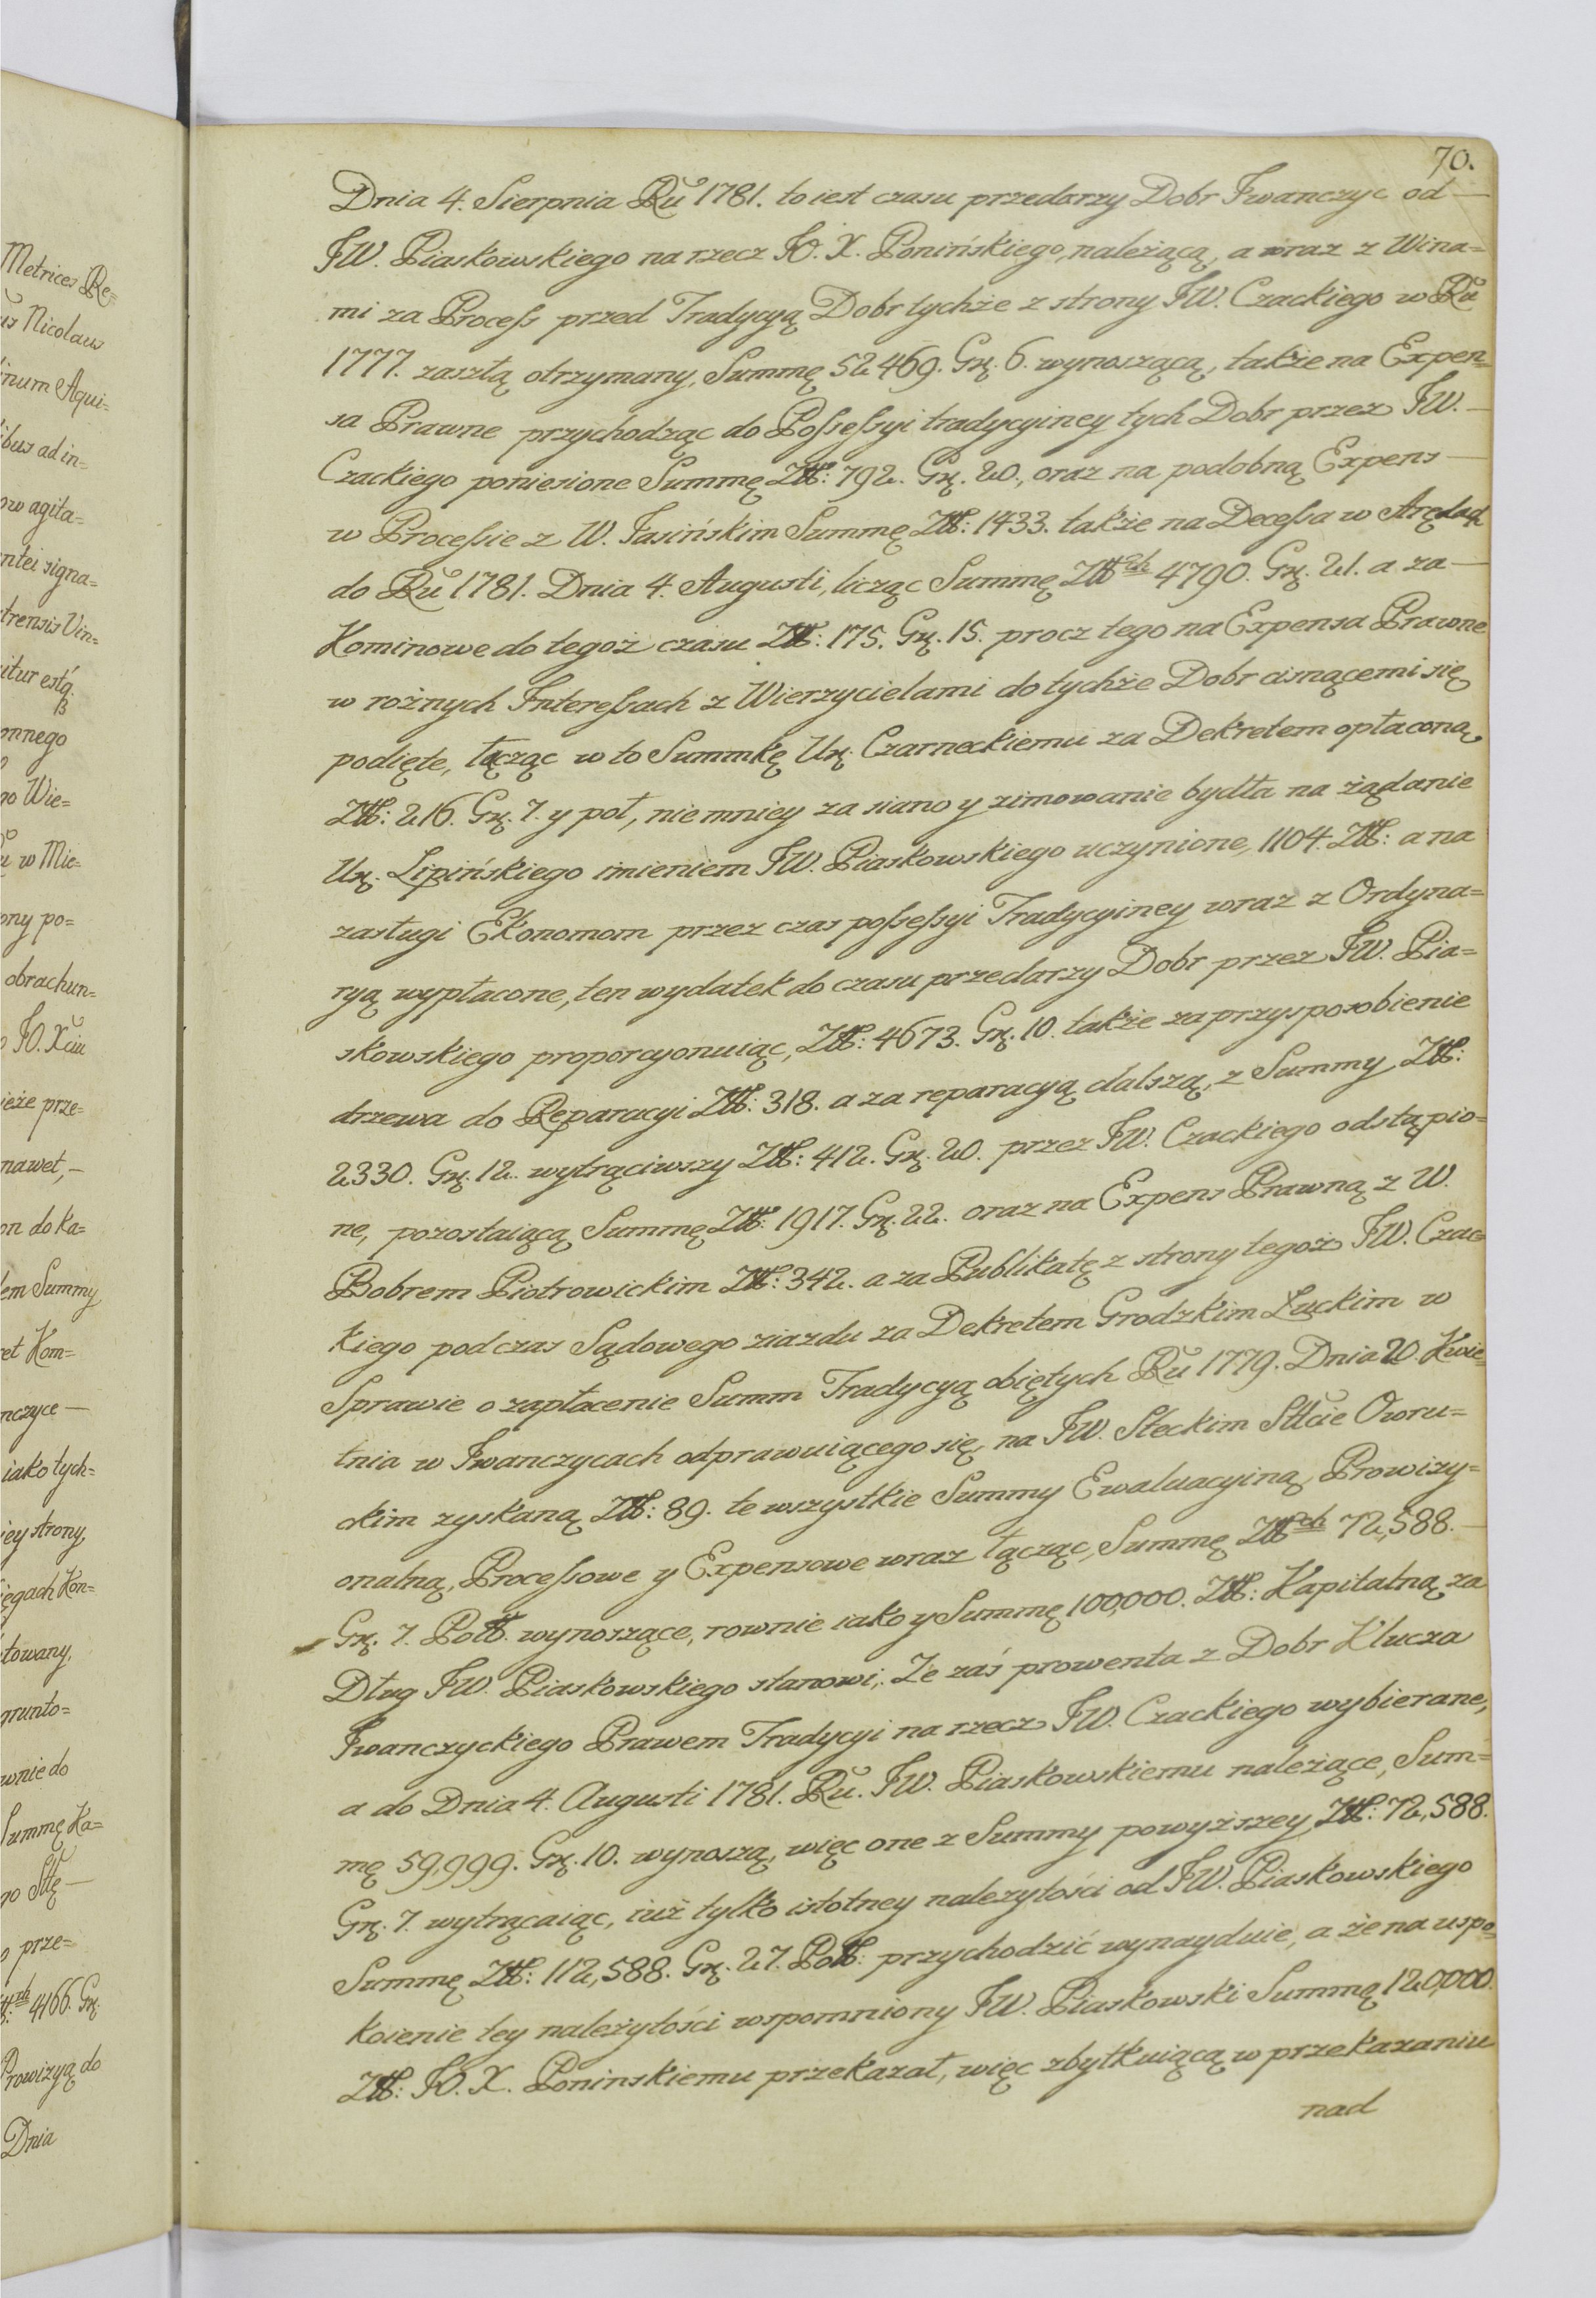 70.
Dnia 4. Sierpnia Ru 1781. to iest czasu przedarzy Dobr Iwanczyc od —
JW. Piaskowskiego na rzecz JO. X. Ponińskiego, należącą, a wraz z Wina=
mi za Process przed Tradycyą Dobr tychże z strony JW. Czackiego w Ru
1777. zaszłą otrzymany, Summę 52469. Gr. 6. wynoszącą, także na Expen=
sa Prawne przychodząc do Possessyi tradycyiney tych Dobr przez JW. —
Czackiego poniesione Summę Złł: 792. Gr. 20., oraz na podobną Expens —
w Processie z W. Jasińskim Summę Złł: 1433. także na Decessa w Arędach
do Ru 1781. Dnia 4. Augusti, licząc Summę Złłch 4790. Gr. 21. a za —
Kominowe do tegoż czasu Złł: 175. Gr. 15. procz tego na Expensa Prawne
w rożnych Interessach z Wierzycielami do tychże Dobr cisnącemi się
podięte, łącząc w to Summkę Ur. Czarneckiemu za Dekretem opłaconą
Złł: 216. Gr. 7. y poł, niemniey za siano y zimowanie bydła na żądanie
Ur. Lipińskiego imieniem JW. Piaskowskiego uczynione, 1104. Złł: a na
zasługi Ekonomom przez czas possessyi Tradycyiney wraz z Ordyna=
ryą wypłacone, ten wydatek do czasu przedarzy Dobr przez JW. Pia=
skowskiego proporcyonuiąc, Złł: 4673. Gr. 10. także za przysposobienie
drzewa do Reparacyi Złł: 318. a za reparacyą dalszą, z Summy Złł:
2330. Gr. 12. wytrąciwszy Złł: 412. Gr. 20. przez JW. Czackiego odstąpio=
ne, pozostaiącą Summę Złł: 1917. Gr. 22. oraz na Expens Prawną z W.
Bobrem Piotrowickim Złł: 342. a za Publikatę z strony tegoż JW. Czac=
kiego podczas Sądowego ziazdu za Dekretem Grodzkim Łuckim w
Sprawie o zapłacenie Summ Tradycyą obiętych Ru 1779. Dnia 20. Kwie=
tnia w Iwanczycach odprawuiącego się, na JW. Steckim Sttcie Owru=
ckim zyskaną Złł: 89. te wszystkie Summy Ewaluacyiną, Prowizy=
onalną, Processowe y Expensowe wraz łącząc, Summę Złłch 72,588. —
Gr. 7. Połł. wynoszące, rownie iako y Summę 100,000. Złł: Kapitalną za
Dług JW. Piaskowskiego stanowi,. Ze zaś prowenta z Dobr Klucza
Iwanczyckiego Prawem Tradycyi na rzecz JW. Czackiego wybierane,
a do Dnia 4. Augusti 1781. Ru. JW. Piaskowskiemu należące, Sum=
mę 59,999. Gr. 10. wynoszą, więc one z Summy powyższey Złł: 72,588.
Gr. 7. wytrącaiąc, iuż tylko istotney należytości od JW. Piaskowskiego
Summę Złł: 112,588. Gr. 27. Połł: przychodzić wynayduie, a że na uspo=
koienie tey należytości wspomniony JW. Piaskowski Summę 120,000.
Złł: JO. X. Poninskiemu przekazał, więc zbytkuiącą w przekazaniu
nad